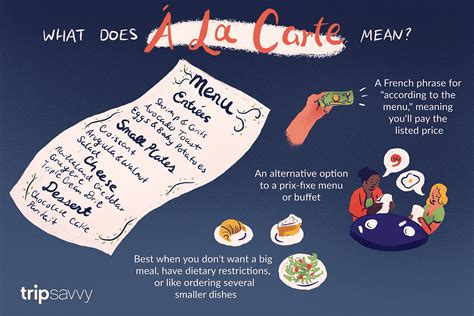 WHAT DOES Á La Carte MEAN?
Menu
Entrées
Shrimp & Grits
Avocado Toast
Eggs & Baby Potatoes
Small Plates
Croissant
Arugula & Walnut
Salad
Cheese
Gruyere
Triple Cream Brie
Dessert
Chocolate Cake
Parfait
A French phrase for
"according to the
menu," meaning
you'll pay the
listed price
An alternative option
to a prix-fixe menu
or buffet
Best when you don't want a big
meal, have dietary restrictions,
or like ordering several
smaller dishes
tripsavvy